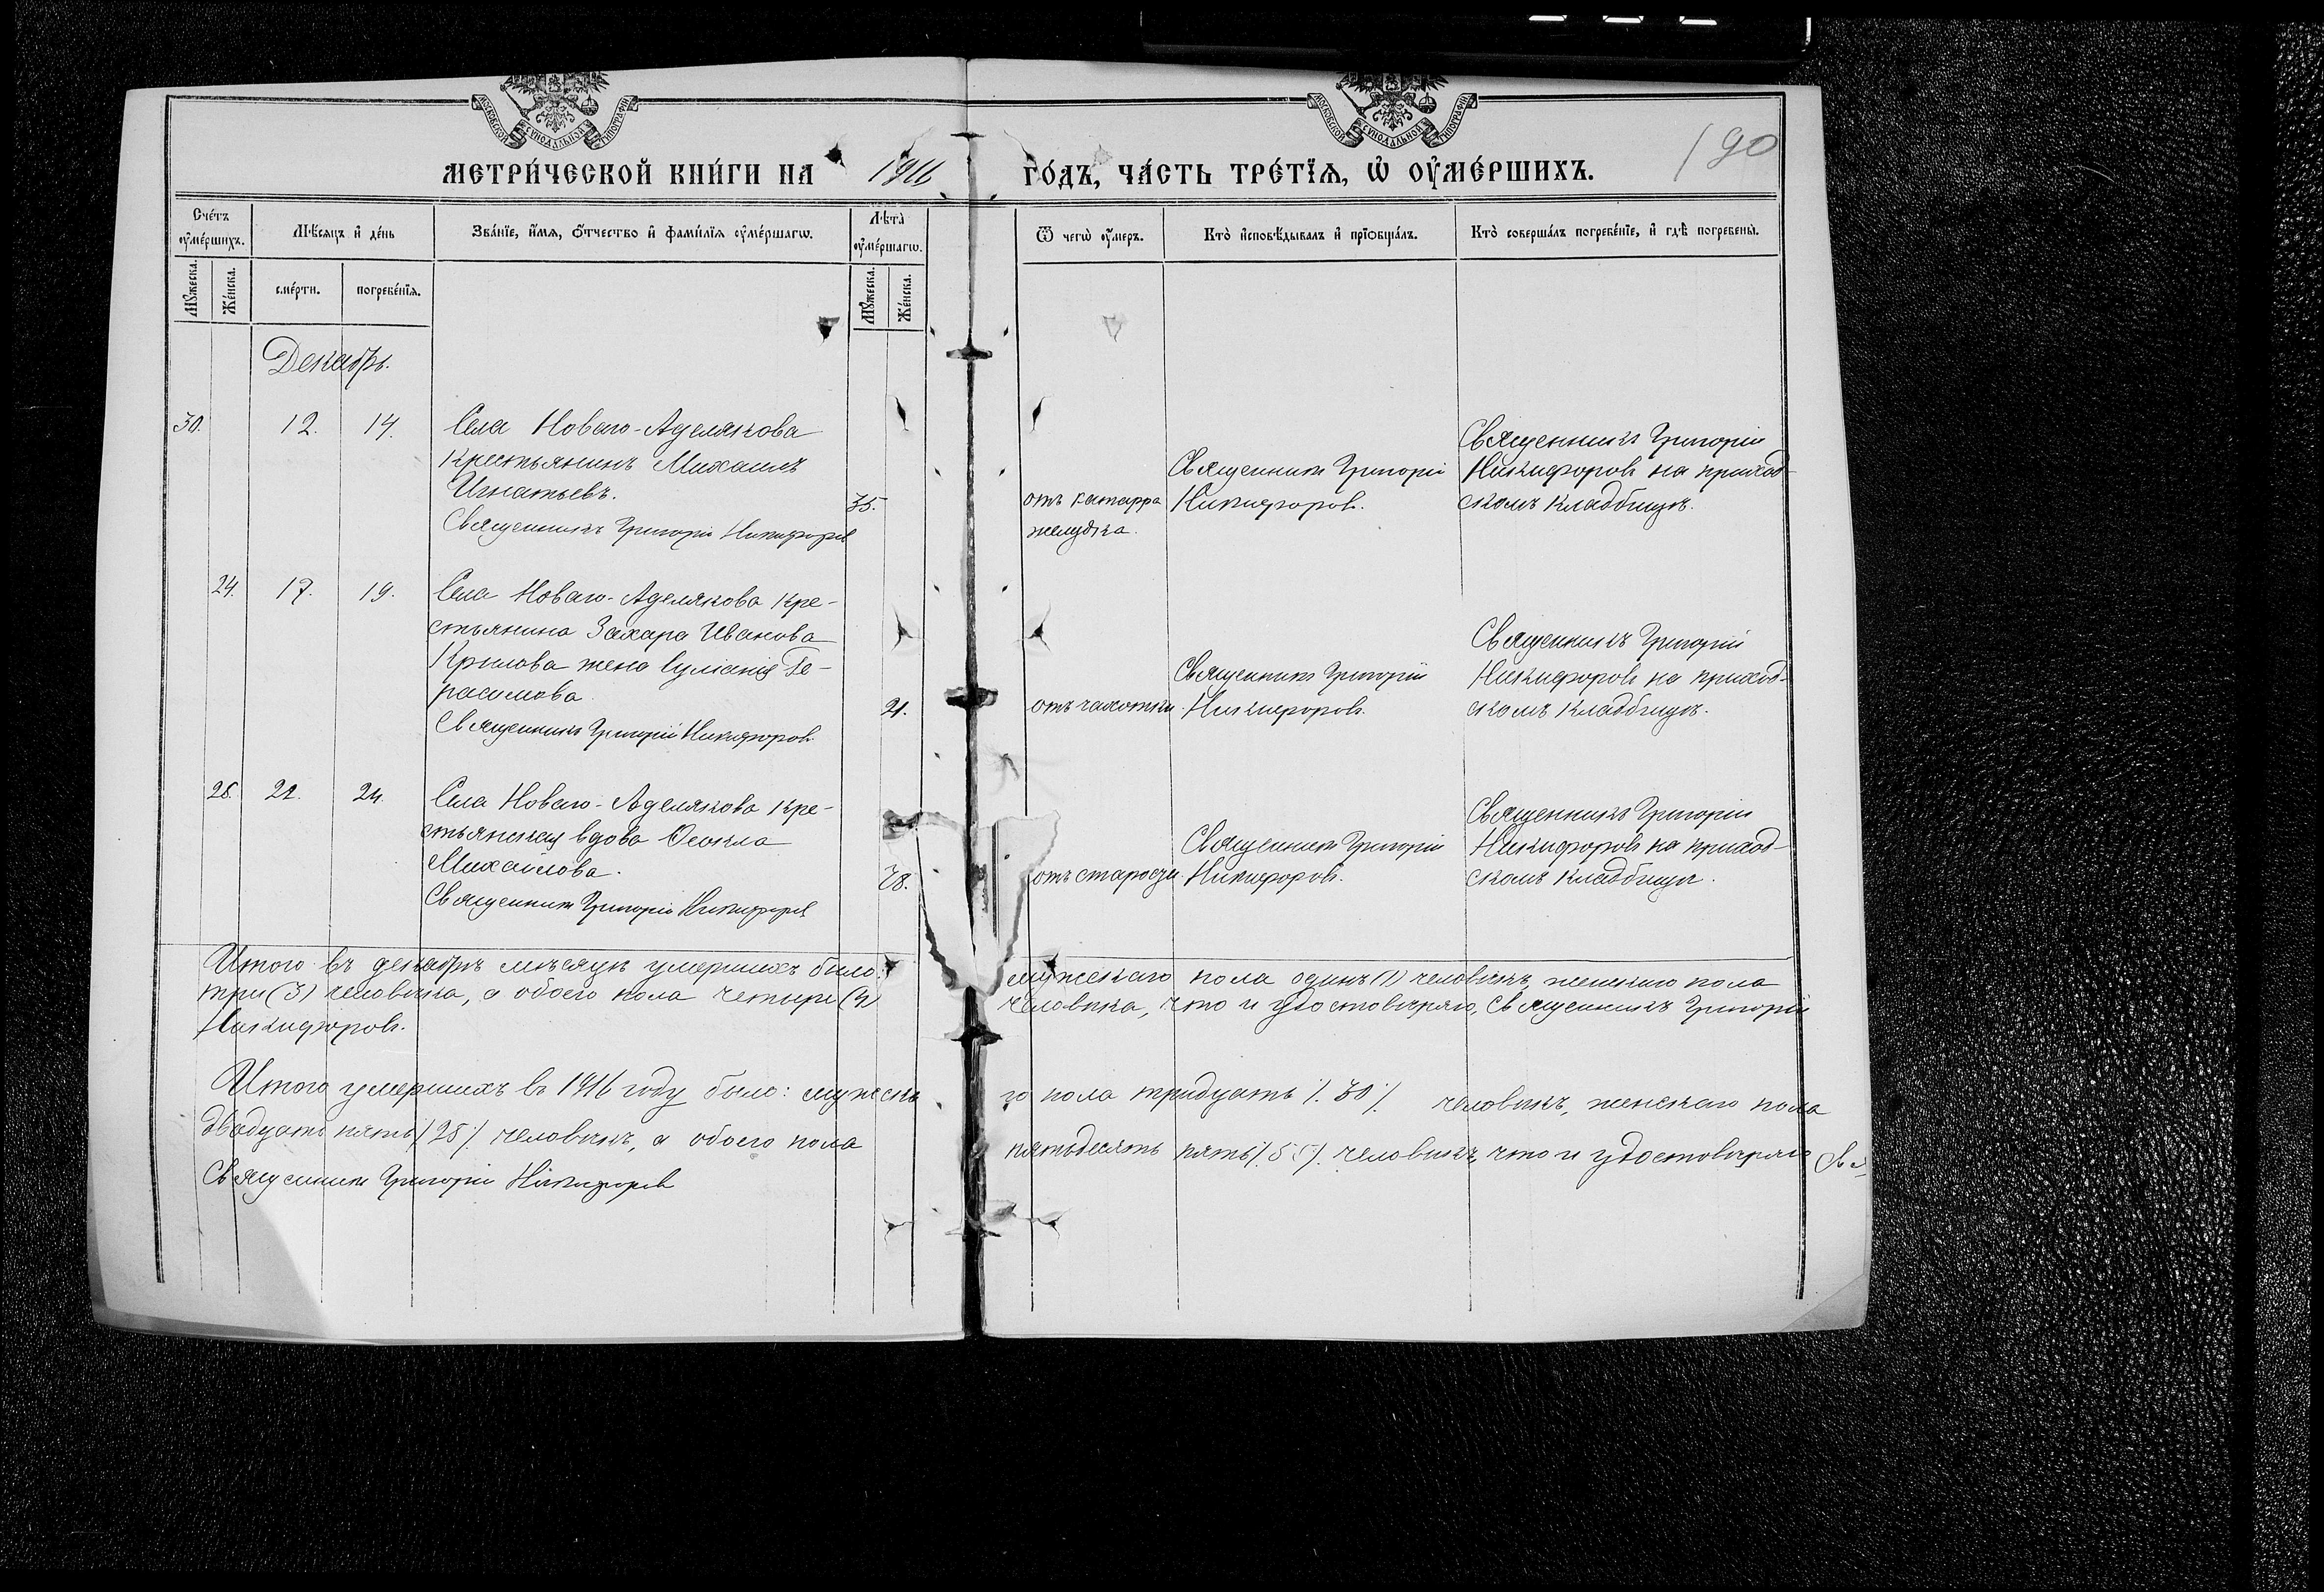 МОСКОВСКОЙ СѴНОДАЛЬНОЙ ТИПОГРАФІИ
МОСКОВСКОЙ СѴНОДАЛЬНОЙ ТИПОГРАФІИ
190
МЕТРИ́ЧЕСКОЙ КНИ́ГИ НА 1916 ГО́ДЪ, ЧА́СТЬ ТРЕ́ТЇѦ, Ѡ҆ ОУ҆МЕ́РШИХЪ.
Сче́тъ оу҆ме́ршихъ.
Мꙋ́жеска.
Же́нска.
Мѣ́сѧцъ и҆ де́нь
сме́рти.
погребе́нїѧ.
Зва́нїе, и҆́мѧ, ѻ҆́тчество и҆ фами́лїѧ оу҆ме́ршагѡ.
Лѣ́та оу҆ме́ршагѡ.
Мꙋ́жеска.
Же́нска.
Ѿ чегѡ̀ оу҆́меръ.
Кто̀ и҆сповѣ́дывалъ и҆ прїобща́лъ.
Кто̀ соверша́лъ погребе́нїе, и҆ гдѣ̀ погребены̀.
Декабрь.
30. 12. 14.
Села Новаго-Аделякова
крестьянинъ Михаилъ
Игнатьевъ.
35.
Священникъ Григорій Никифоровъ
отъ катарра
желудка.
Священникъ Григорій
Никифоровъ.
Священникъ Григорій
Никифоровъ на приход-
скомъ кладбищѣ.
24. 17. 19.
Села Новаго-Аделякова кре-
стьянина Захара Иванова
Крылова жена Іуліанія Ге-
расимова.
21.
Священникъ Григорій Никифоровъ.
отъ чахотки.
Священникъ Григорій
Никифоровъ.
Священникъ Григорій
Никифоровъ на приход-
скомъ кладбищѣ.
25. 22. 24.
Села Новаго-Аделякова кре-
стьянская вдова Ѳекла
Михайлова.
78.
Священникъ Григорій Никифоровъ
отъ старости.
Священникъ Григорій
Никифоровъ.
Священникъ Григорій
Никифоровъ на приход-
скомъ кладбищѣ.
Итого въ декабрѣ мѣсяцѣ умершихъ было: мужескаго пола одинъ (1) человѣкъ, женскаго пола
три (3) человѣка, а обоего пола четыре (4) человѣка, что и удостовѣряю, Священникъ Григорій
Никифоровъ.
Итого умершихъ въ 1916 году было: мужескаго пола тридцать /.30/. человѣкъ, женскаго пола
двадцать пять /.25/. человѣкъ, а обоего пола пятьдесятъ пять /.55/. человѣкъ, что и удостовѣряю
Священникъ Григорій Никифоровъ